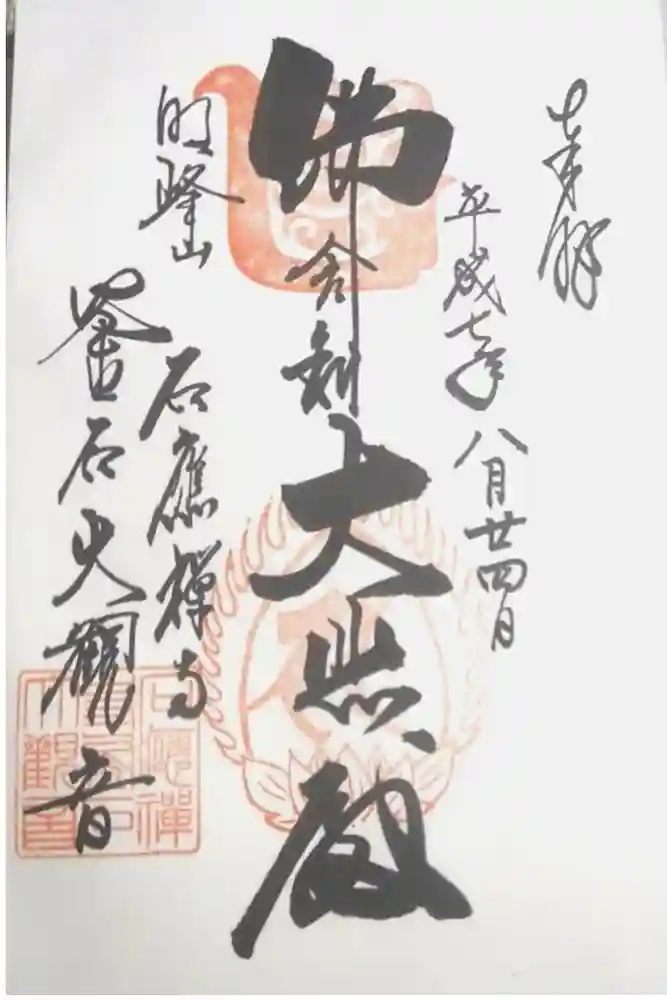 奉拝
平成七年八月廿四日
佛舎利大悲殿
明峰山
石應禅寺
釜石大觀音
石應禪
寺釜石
大觀音